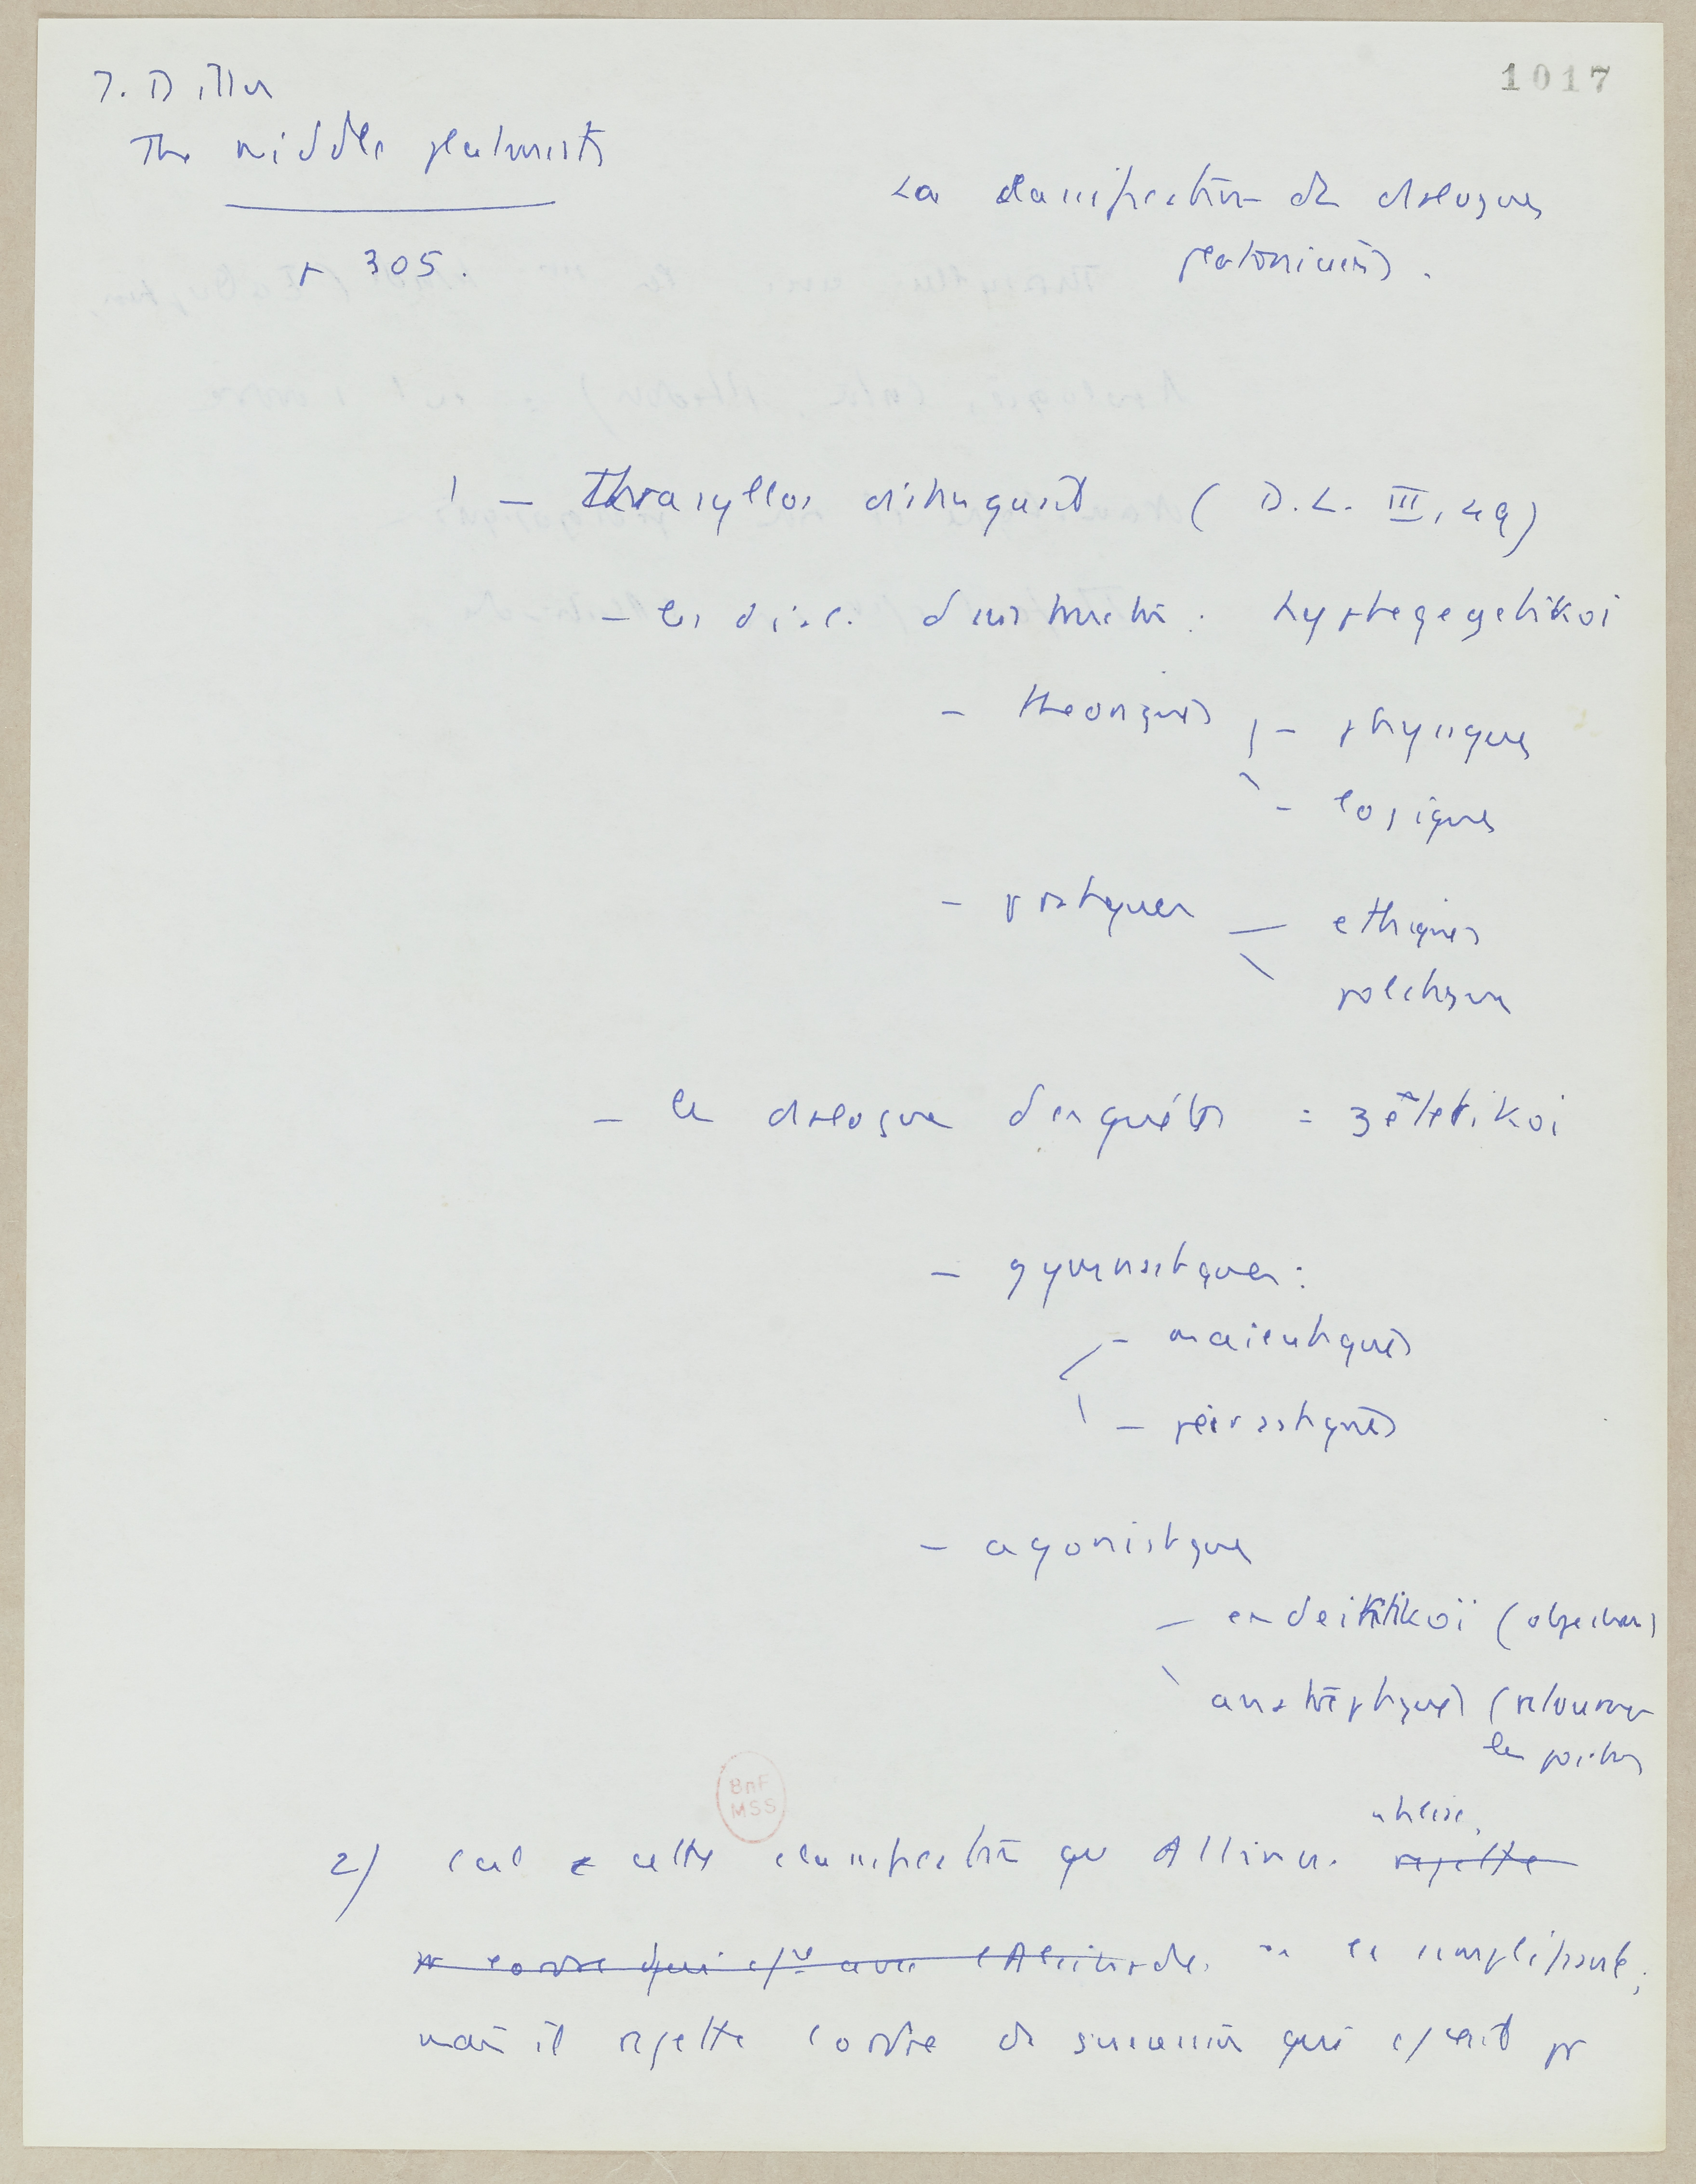 1017
J. Dillon
The middle platonists
p 305.
La classification des dialogues
platoniciens.
1 - Thrasyllos distinguait (D.L. III, 49)
- les disc. d'instruction : hyphegegetikoi
- theoriques - physiques
- logiques
- pratiques - ethiques
politiques
- les dialogues d'enquêtes = zêtetikoi
- gymnastiques :
- maieutiques
- peirastiques
- agonistiques
- endeiktikoi (objections)
anatreptiques (retourner
les
BnF
MSS
utilise,
2) c'est cette classification que Albinus rejette
l'ordre qui avec l'Alcibiade. en la simplifiant;
mais il rejette l'ordre de succession qui pr